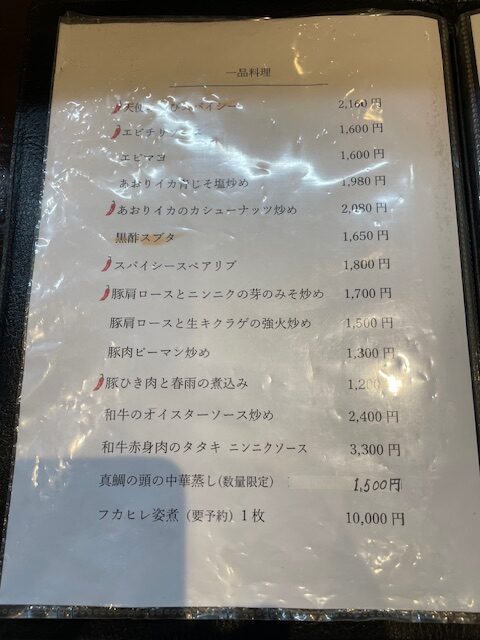 一品料理
天使 パイシー 2,160円
エビチリソース 1,600円
エビマヨ 1,600円
あおりイカ青じそ塩炒め 1,980円
あおりイカのカシューナッツ炒め 2,080円
黒酢スブタ 1,650円
スパイシースペアリブ 1,800円
豚肩ロースとニンニクの芽のみそ炒め 1,700円
豚肩ロースと生キクラゲの強火炒め 1,500円
豚肉ピーマン炒め 1,300円
豚ひき肉と春雨の煮込み 1,200円
和牛のオイスターソース炒め 2,400円
和牛赤身肉のタタキ ニンニクソース 3,300円
真鯛の頭の中華蒸し(数量限定) 1,500円
フカヒレ姿煮(要予約)1枚 10,000円